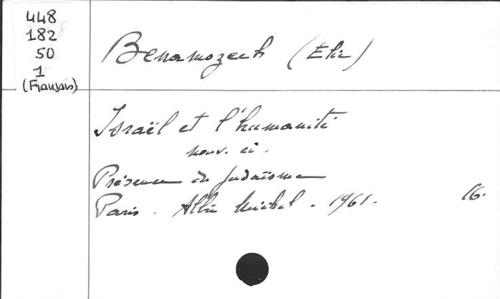 448
182
50
1
(Français)
Benamozegh (Elie)
Israël et l'humanité
nouv. éd.
Présence du Judaïsme
Paris. Albin Michel. 1961. 16.